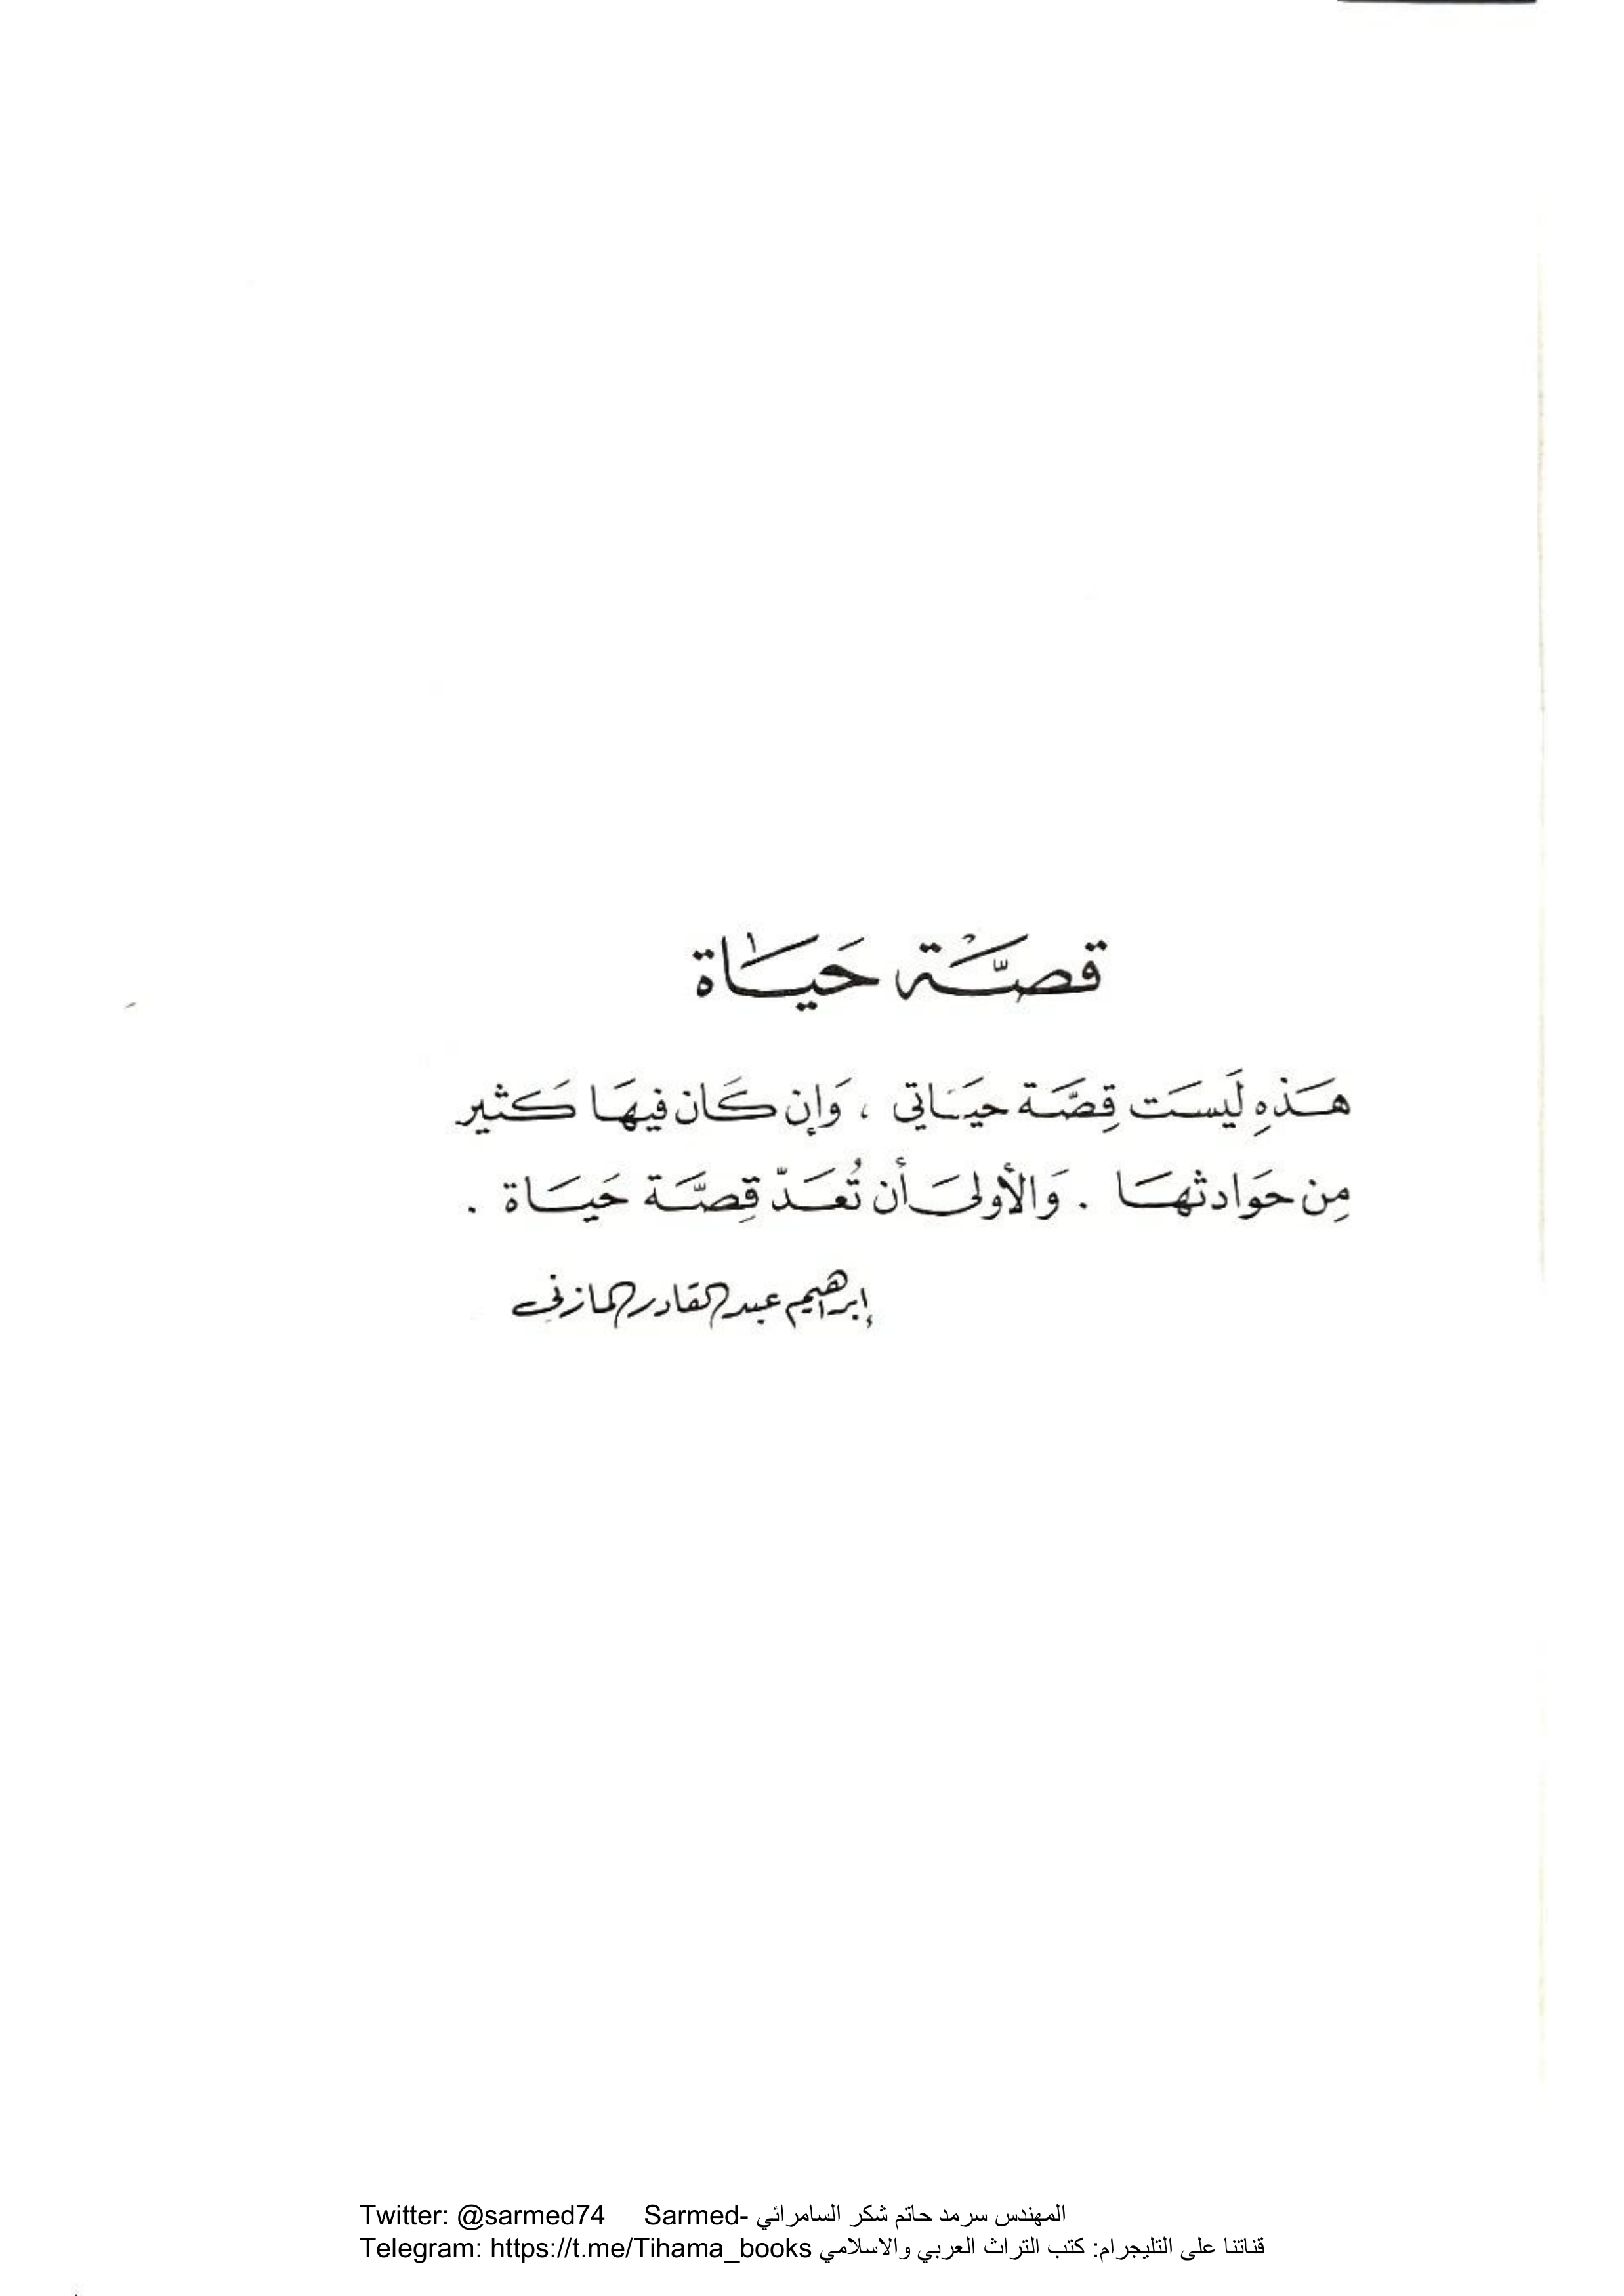 قصَّة حَيَاة
هَذِهِ لَيسَت قِصَّة حيَاتي ، وَإن كَان فيهَا كَثير
مِن حَوَادثهَا . وَالأولىَ أن تُعَدّ قِصَّة حَيَاة .
إبراهيم عبد القادر المازني
Twitter: @sarmed74 Sarmed- المهندس سرمد حاتم شكر السامرائي
Telegram: https://t.me/Tihama_books قناتنا على التليجرام: كتب التراث العربي والاسلامي